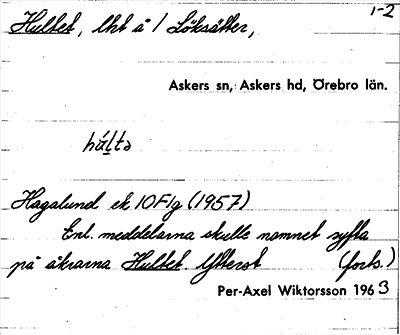 1-2
Hultet, lht å 1 Löksätter,
Askers sn, Askers hd, Örebro län.
húltə
Hagalund ek 10F1g (1957)
Enl. meddelarna skulle namnet syfta
på åkrarna Hultet. Ytterst (forts.)
Per-Axel Wiktorsson 1963